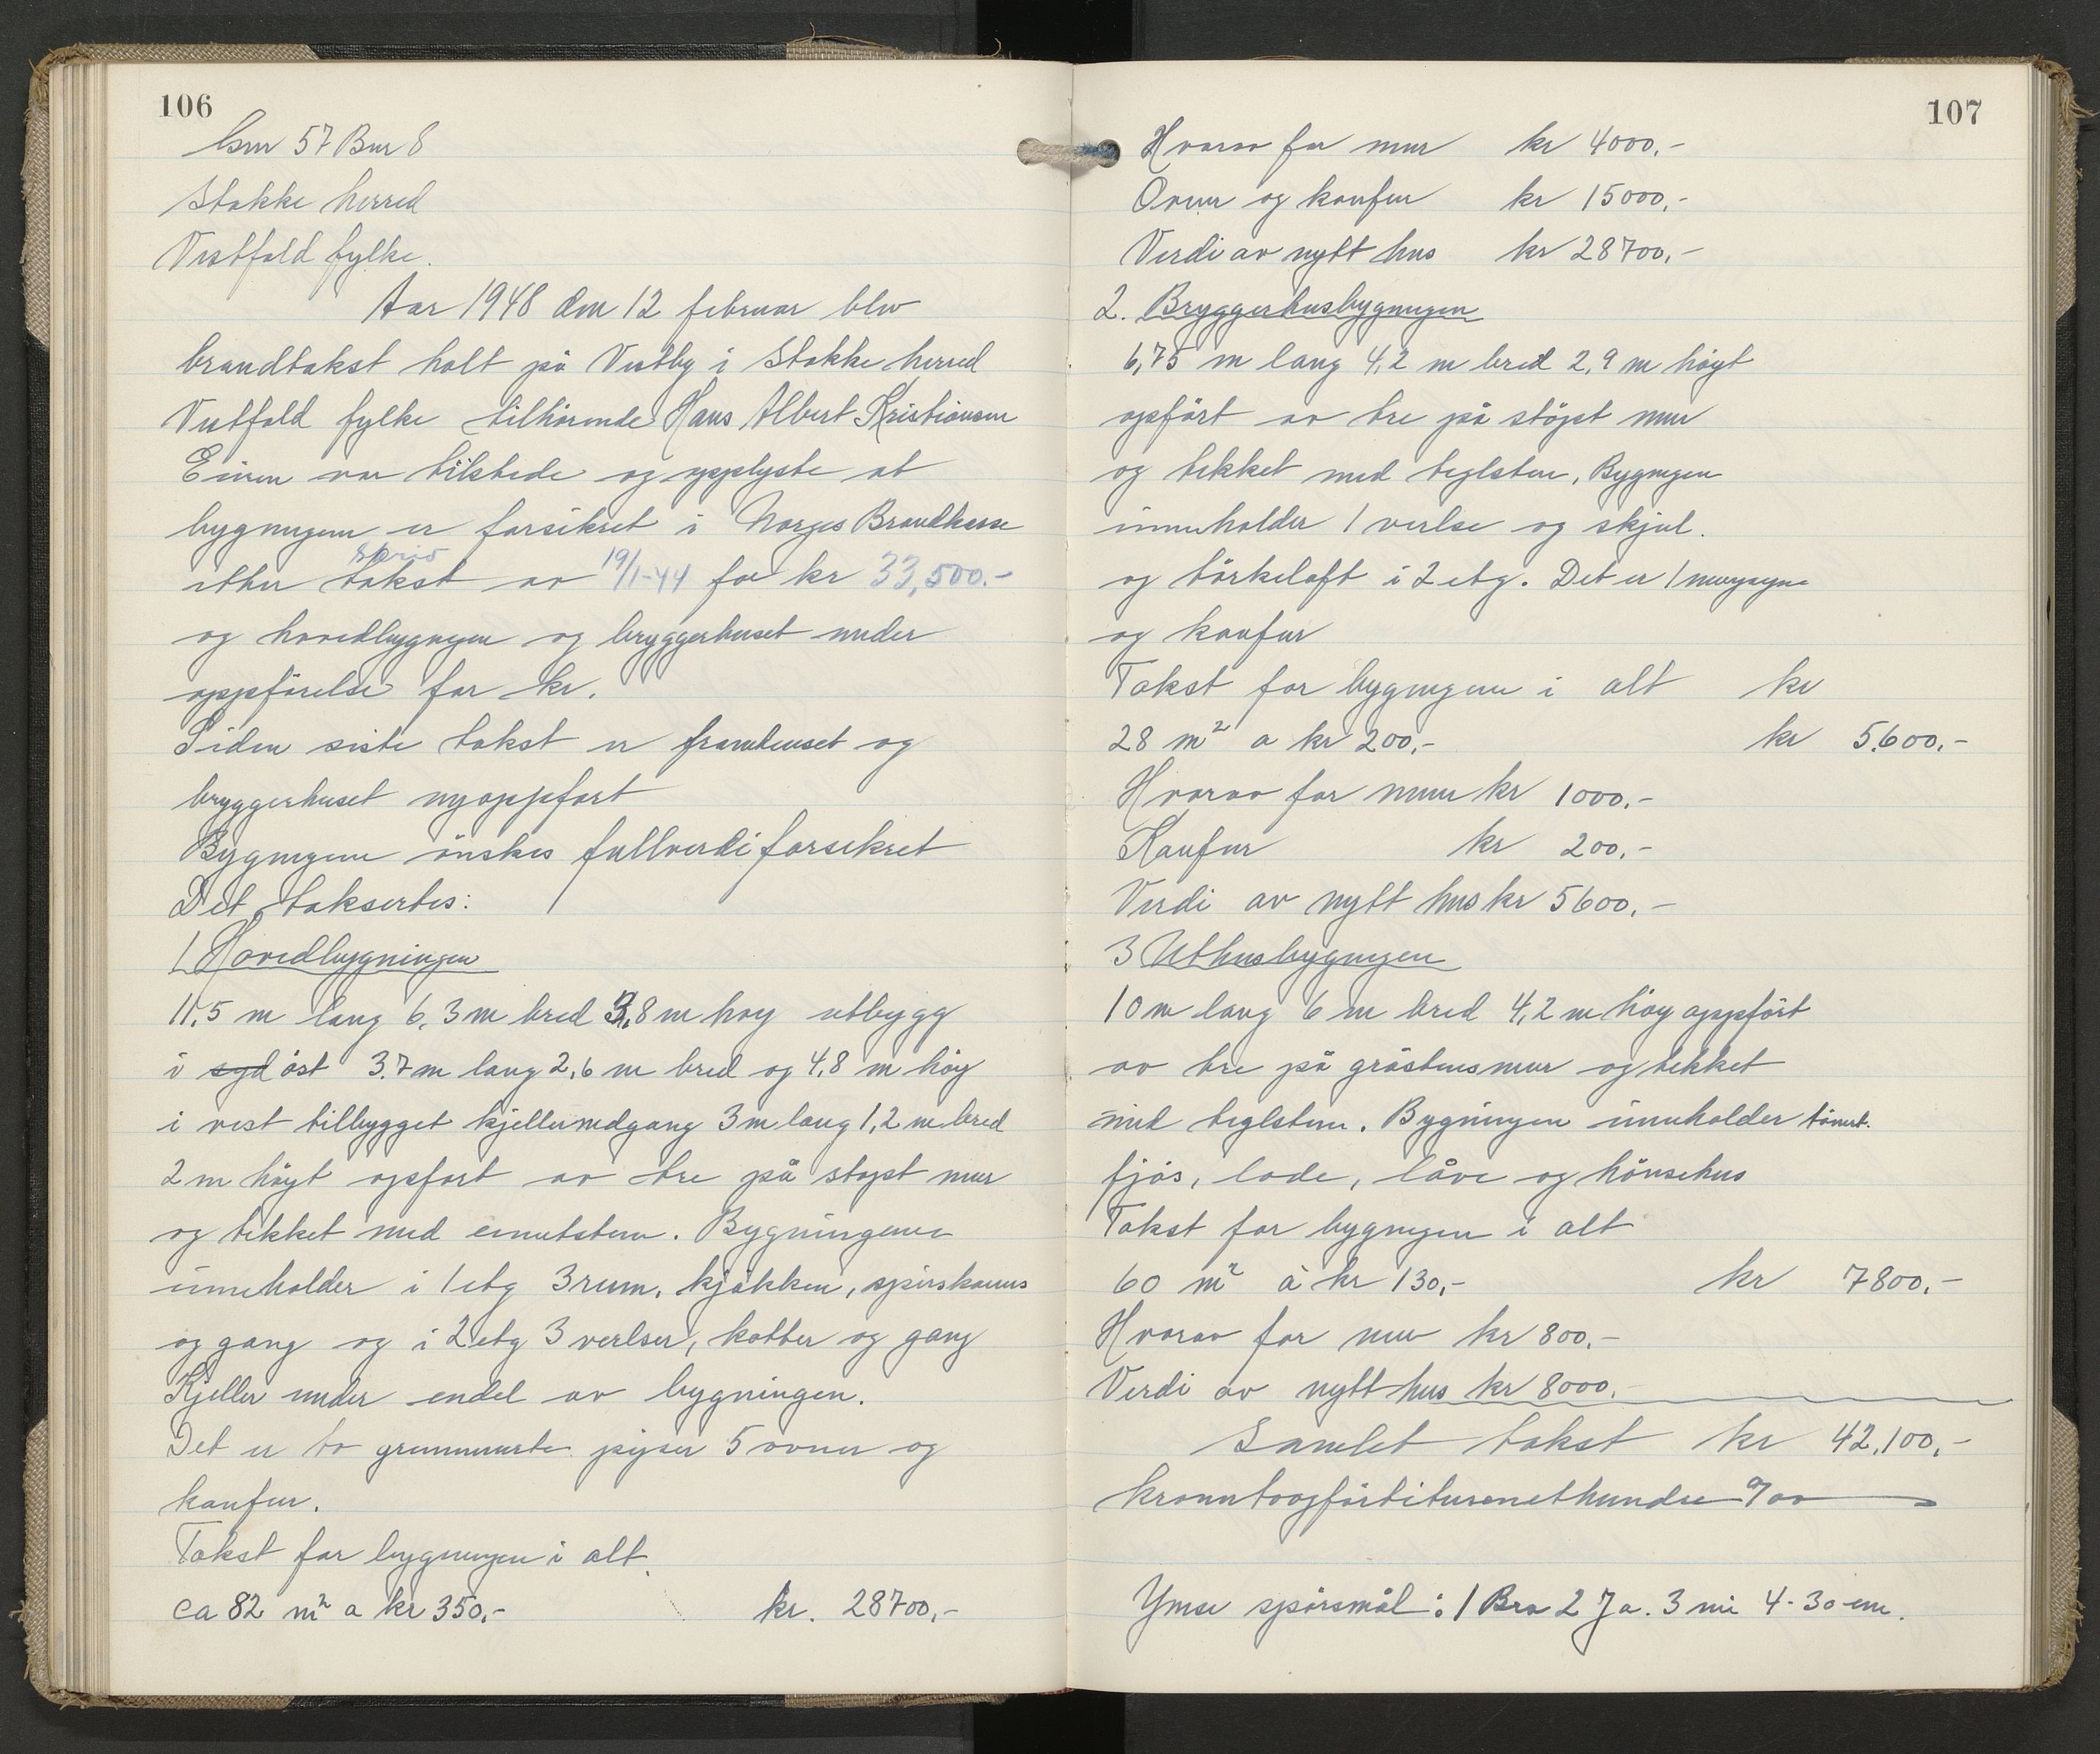 106
Gnr 57 Bnr 8
Stokke herred
Vestfold fylke.
Aar 1948 den 12 februar blev
brandtakst holt på Vestby i Stokke herred
Vestfold fylke tilhörende Hans Albert Kristiansen
Eieren var tilstede og opplyste at
bygningene er forsikret i Norges Brandkasse
etter takst av 19/1-44 for kr 33,500.-
og hovedbygngen og bryggerhuset under
oppförelse for kr.
Siden siste takst er framhuset og
bryggerhuset nyoppfort
Bygngene önskes fullverdiforsikret
Det taksertes:
1 Hovedbygningen
11,5 m lang 6,3 m bred 3,8 m hoy utbygg
i syd öst 3.7 m lang 2,6 m bred og 4,8 m höy
i vest tilbygget kjellernedgang 3 m lang 1,2 m bred
2 m höyt opfort av tre på stöpt mur
og tekket med sementsten. Bygningene
inneholder i 1 etg 3 rum, kjökken, spiskamms
og gang og i 2 etg 3 verlser, kotter og gang
Kjeller under endel av bygningen.
Det er to grunnmurte piper 5 ovner og
komfur.
Takst for bygningen i alt.
ca 82 m² a kr 350,- kr. 28700,-
107
Hvorav for mur kr 4000,-
Ovner og komfur kr 15000,-
Verdi av nytt hus kr 28700,-
2. Bryggerhusbygningen
6,75 m lang 4,2 m bred 2,9 m höyt
opfört av tre på stöpt mur
og tekket med teglsten, Bygngen
inneholder 1 verlse og skjul.
og törkeloft i 2 etg. Det er 1 murpipe
og komfur
Takst for bygngene i alt kr
28 m² a kr 200,- kr 5.600,-
Hvorav for mur kr 1000,-
Komfur kr 200,-
Verdi av nytt hus kr 5600,-
3 Uthusbygngen
10 m lang 6 m bred 4,2 m höy oppfört
av tre på gråstensmur og tekket
med teglsten. Bygningen inneholder tömret.
fjös, lade, låve og hönsehus
Takst for bygngen i alt
60 m² à kr 130,- kr 7800,-
Hvorav for mur kr 800,-
Verdi av nytt hus kr 8000,-
Samlet takst kr 42,100,-
kronertoogförtitusenethundre 0/00
Ymse spörsmål: 1 Bra 2 Ja. 3 nei 4 - 30 em.